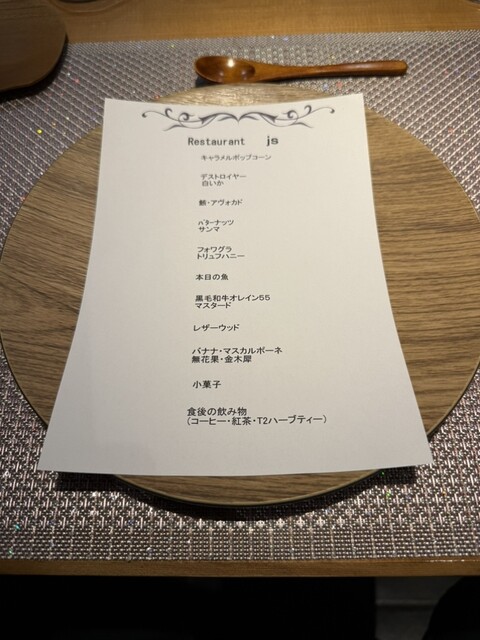 Restaurant js
キャラメルポップコーン
デストロイヤー
白いか
鮪・アヴォカド
バターナッツ
サンマ
フォワグラ
トリュフハニー
本日の魚
黒毛和牛オレイン55
マスタード
レザーウッド
バナナ・マスカルポーネ
無花果・金木犀
小菓子
食後の飲み物
(コーヒー・紅茶・T2ハーブティー)